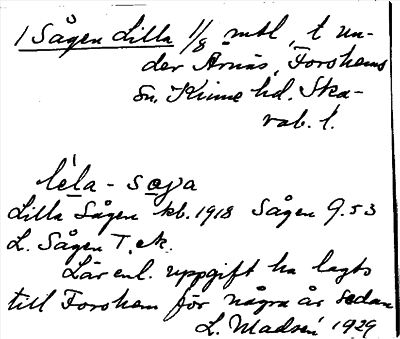 1 Sågen Lilla 1/8 mtl, t un-
der Årnäs, Forshems
sn, Kinne hd. Ska-
rab. l.
léla - sǫga
Lilla Sågen kb. 1918 Sågen 9.53
L. Sågen T. ek.
Lär enl. uppgift ha lagts
till Forshem för några år sedan
L. Madsén 1929